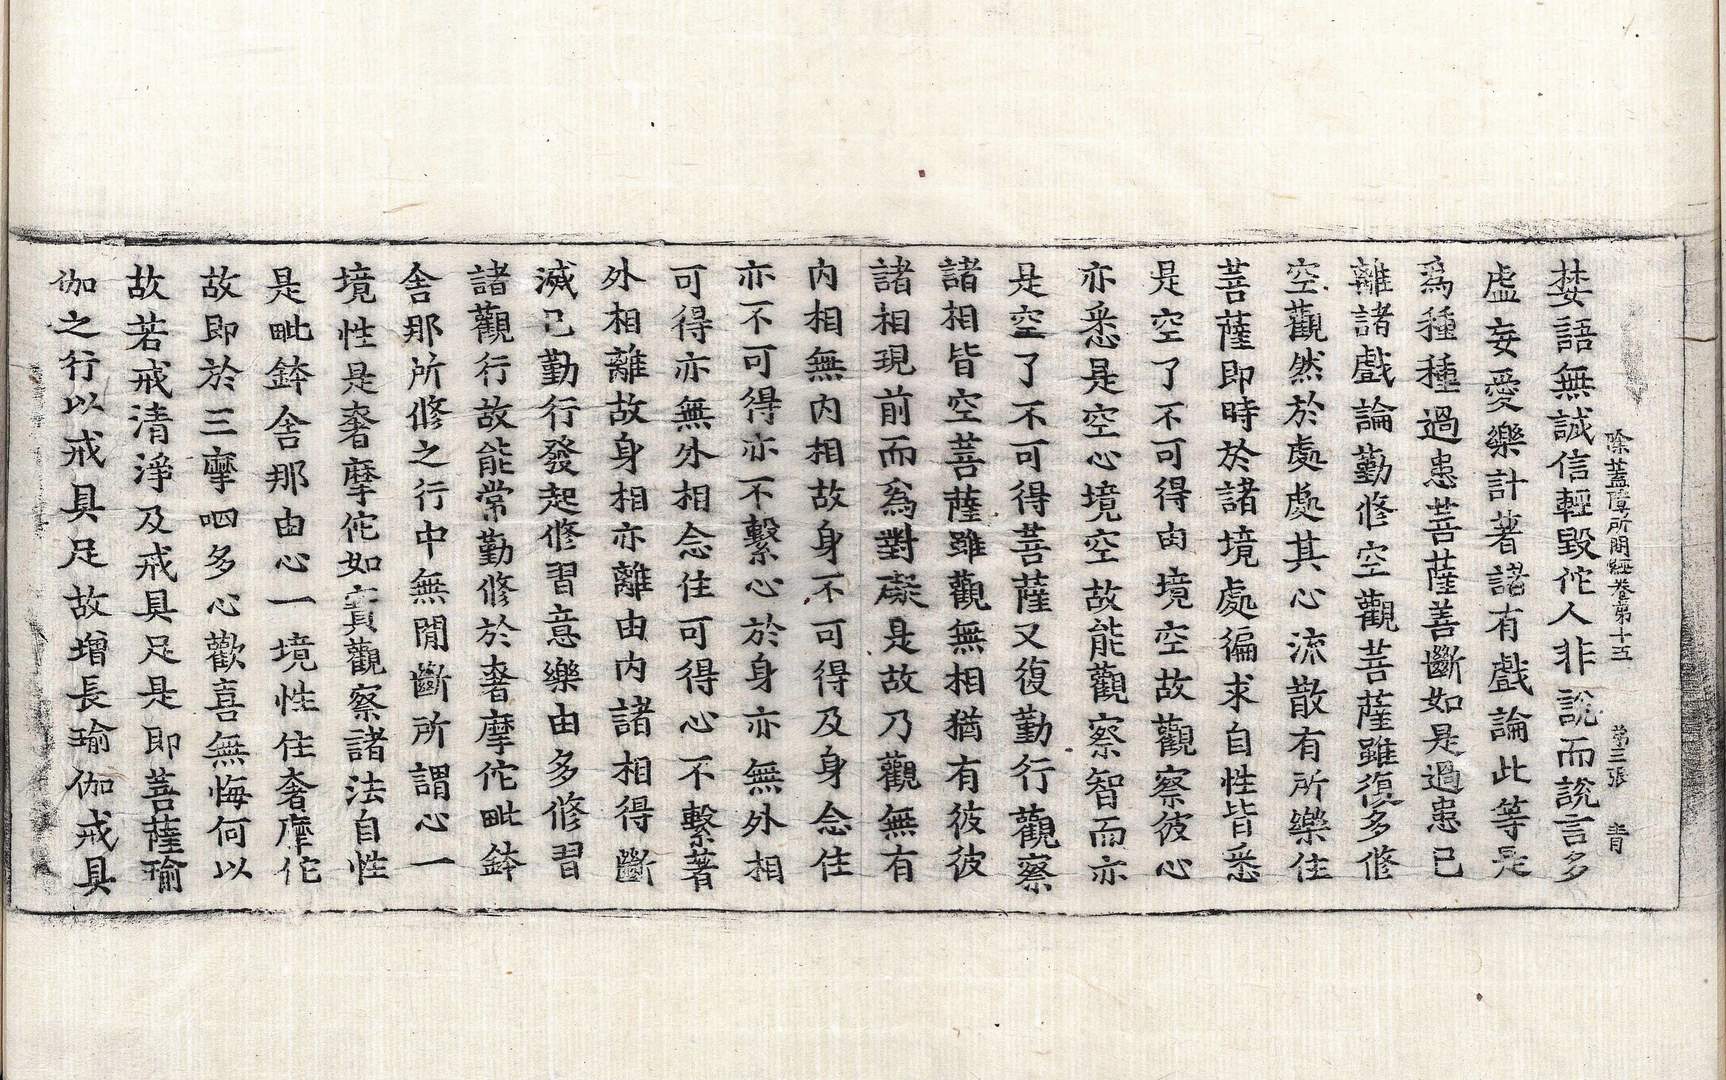 除蓋障所問經卷第十五 第三張 青
婪語無誠信輕毀佗人非說而說言多
虛妄愛樂計著諸有戲論此等是
爲種種過患菩薩善斷如是過患已
離諸戲論勤修空觀菩薩雖復多修
空觀然於處處其心流散有所樂住
菩薩即時於諸境處徧求自性皆悉
是空了不可得由境空故觀察彼心
亦悉是空心境空故能觀察智而亦
是空了不可得菩薩又復勤行觀察
諸相皆空菩薩雖觀無相猶有彼彼
諸相現前而爲對礙是故乃觀無有
内相無内相故身不可得及身念住
亦不可得亦不繫心於身亦無外相
可得亦無外相念住可得心不繫著
外相離故身相亦離由内諸相得斷
滅已勤行發起修習意樂由多修習
諸觀行故能常勤修於奢摩佗毗鉢
舍那所修之行中無閒斷所謂心一
境性是奢摩佗如實觀察諸法自性
是毗鉢舍那由心一境性住奢摩佗
故即於三摩呬多心歡喜無悔何以
故若戒清淨及戒具足是即菩薩瑜
伽之行以戒具足故增長瑜伽戒具